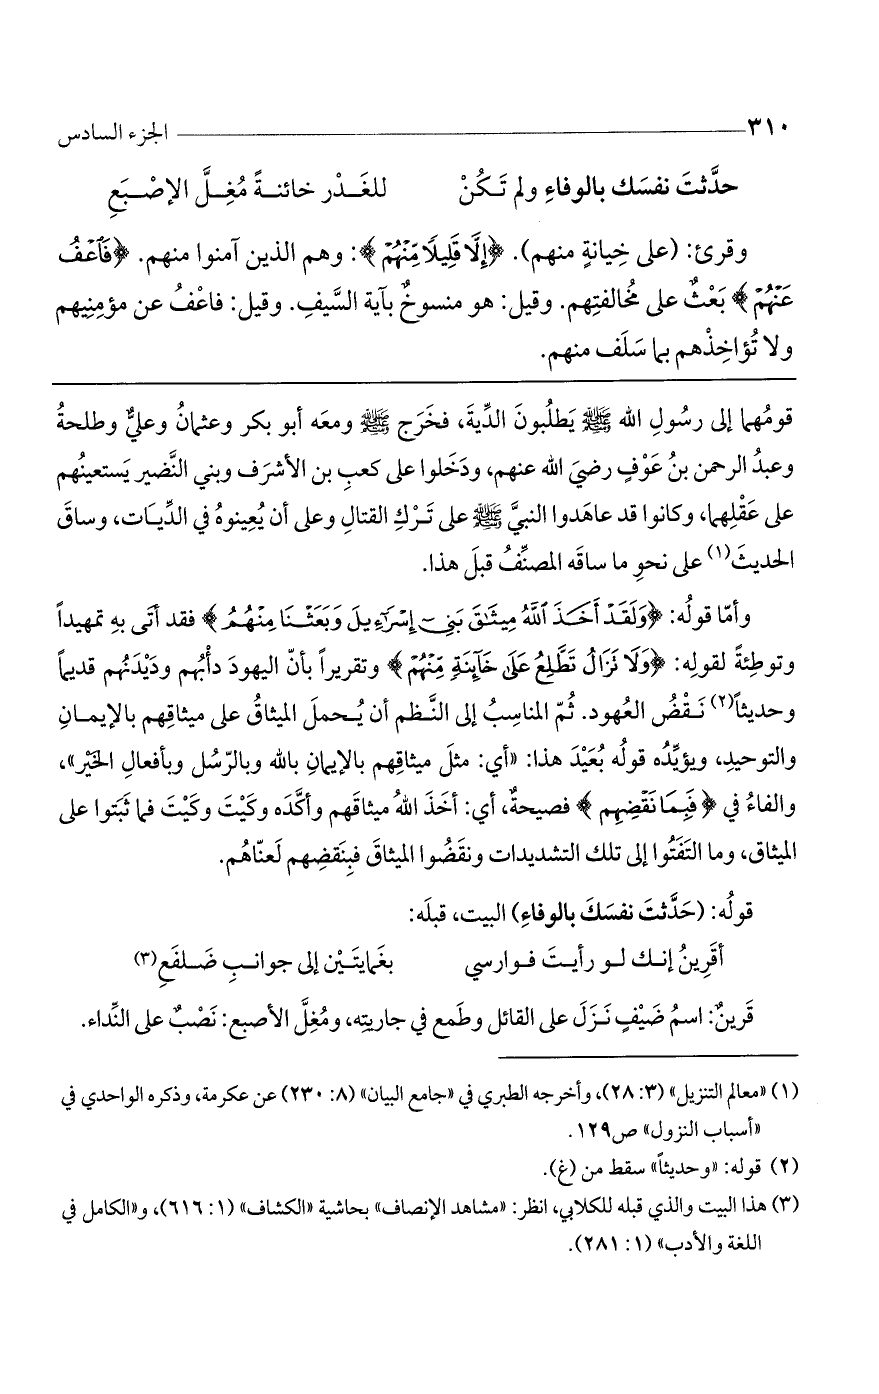 ٣١٠ الجزء السادس
حدَّثتَ نفسَك بالوفاءِ ولم تَـكُنْ للغَـدْر خائنـةً مُغِـلَّ الإصْـبَعِ
وقرئ: (على خِيانةٍ منهم). ﴿إِلَّا قَلِيلًا مِّنْهُمْ﴾: وهم الذين آمنوا منهم. ﴿فَاعْفُ
عَنْهُمْ﴾ بَعْثٌ على مُخالفتِهم. وقيل: هو منسوخٌ بآية السَّيفِ. وقيل: فاعْفُ عن مؤمنِيهم
ولا تُؤاخِذْهم بما سَلَف منهم.
قومُهما إلى رسُولِ الله ﷺ يَطلُبونَ الدِّيةَ، فخَرَج ﷺ ومعَه أبو بكر وعثمانُ وعليٌّ وطلحةُ
وعبدُ الرحمن بنُ عَوْفٍ رضيَ الله عنهم، ودَخَلوا على كعبِ بن الأشرَف وبني النَّضير يَستعينُهم
على عَقْلِهما، وكانوا قد عاهَدوا النبيَّ ﷺ على تَـرْكِ القتالِ وعلى أن يُعِينوهُ في الدِّيَات، وساقَ
الحديثَ(١) على نحوِ ما ساقَه المصنِّفُ قبلَ هذا.
وأمّا قولُه: ﴿وَلَقَدْ أَخَذَ اللَّهُ مِيثَاقَ بَنِي إِسْرَائِيلَ وَبَعَثْنَا مِنْهُمُ﴾ فقد أتَى بهِ تمهيداً
وتوطِئةً لقولِه: ﴿وَلَا تَزَالُ تَطَّلِعُ عَلَى خَائِنَةٍ مِّنْهُمْ﴾ وتقريراً بأنّ اليهودَ دأْبُهم ودَيْدَنُهم قديماً
وحديثاً(٢) نَـقْضُ العُهود. ثُمّ المناسِبُ إلى النَّـظم أن يُـحملَ الميثاقُ على ميثاقِهم بالإيمـانِ
والتوحيدِ، ويؤيِّدُه قولُه بُعَيْدَ هذا: «أي: مثلَ ميثاقِهم بالإيمانِ بالله وبالرّسُل وبأفعالِ الخَيْر»،
والفاءُ في ﴿فَبِمَا نَقْضِهِم﴾ فصيحةٌ، أي: أخَذَ اللهُ ميثاقَهم وأكَّدَه وكَيْتَ وكَيْتَ فما ثَبَتوا على
الميثاق، وما التَفَتُوا إلى تلك التشديدات ونقَضُوا الميثاقَ فبِنَقضِهم لَعنّاهُم.
قولُه: (حَدَّثتَ نفسَكَ بالوفاءِ) البيت، قبلَه:
أقَرِينُ إنـك لـو رأيـتَ فـوارسي بغَمايتَـيْن إلى جوانـبِ ضَـلفَعِ(٣)
قَرينٌ: اسمُ ضَيْفٍ نَـزَلَ على القائل وطَمع في جاريتِه، ومُغِلَّ الأصبع: نَصْبٌ على النِّداء.
(١) «معالم التنزيل» (٣: ٢٨)، وأخرجه الطبري في «جامع البيان» (٨: ٢٣٠) عن عكرمة، وذكره الواحدي في
«أسباب النزول» ص١٢٩.
(٢) قوله: «وحديثاً» سقط من (غ).
(٣) هذا البيت والذي قبله للكلابي، انظر: «مشاهد الإنصاف» بحاشية «الكشاف» (١: ٦١٦)، و«الكامل في
اللغة والأدب» (١: ٢٨١).